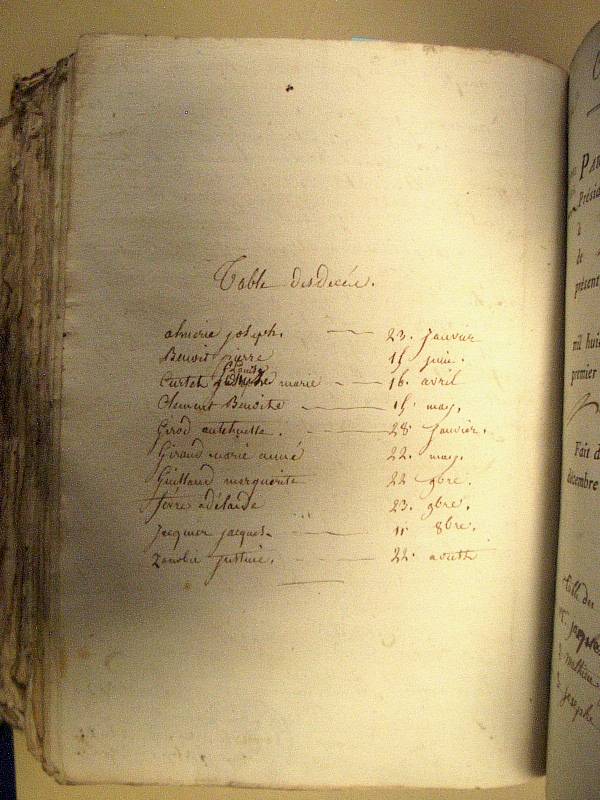 Table des Décès.
almoric joseph. 23. janvier
Benoit pierre 15 juin.
Curtet Louise marie 16. avril
Clement Benoite 15. may.
Girod anthelmette. 28. janvier.
Giraud marie aimé 22. may.
Guillaud marguerite 22 9bre.
ferre adélaide 23. 9bre.
Jacquier jacques. 11 8bre.
justine. 22. aoust
PAR
Présid
à
de
présent
mil huit
premier
Fait d
décembre
table des
mathieu
josephe